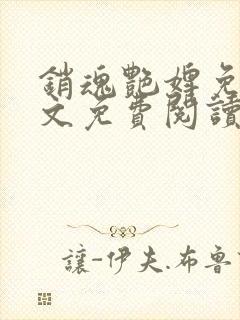 銷魂艷婢免
文免費閱讀
讓-伊夫.布魯